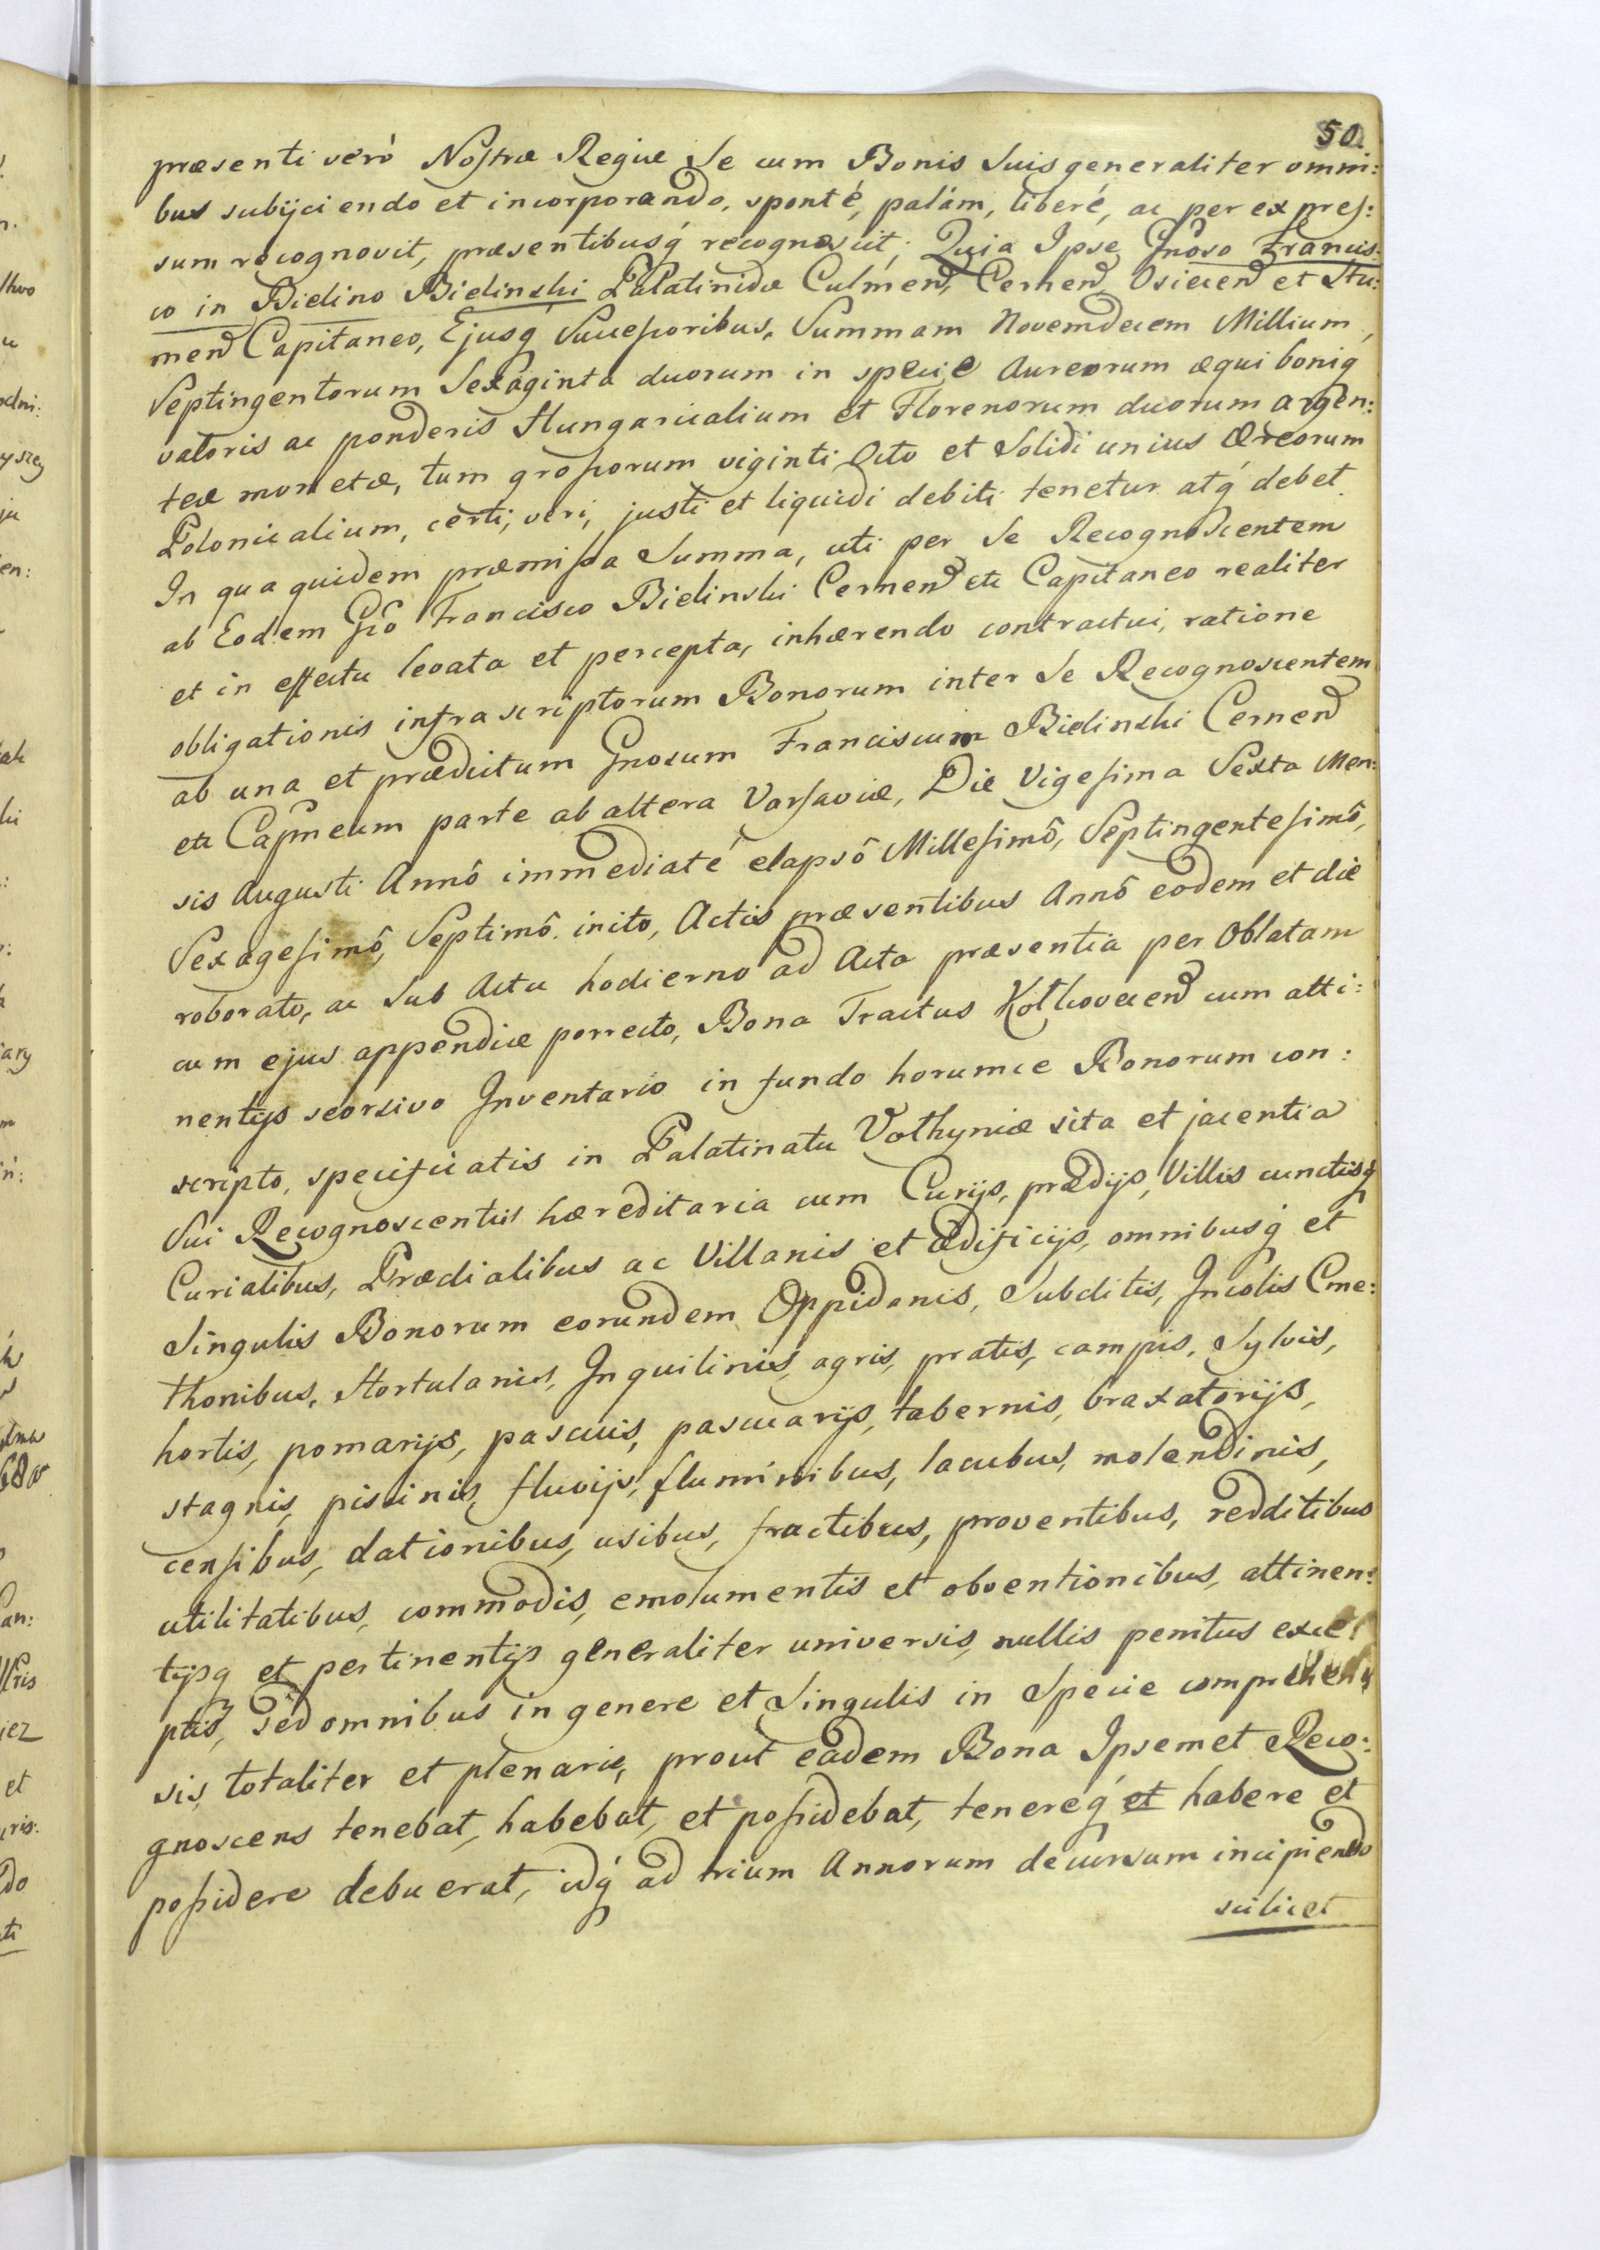 50.
præsenti veró Nostræ Regiæ Se cum Bonis Suis generaliter omni:
bus subijciendo et incorporando, sponté, palám, liberé, ac per expres:
sum recognovit, præsentibusq́ recognoscit; Quia Ipse Gnôso Francis:
co in Bielino Bielinski Palatinidæ Culmen̄, Cernen̄, Osiecen̄ et Stu:
men̄ Capitaneo, Ejusq́ Successoribus, Summam Novemdecem Millium,
Septingentorum Sexaginta duorum in specie Aureorum æqui boniq
valoris ac ponderis Hungaricalium et Florenorum duorum argen:
teæ monetæ, tum grossorum viginti Octo et Solidi unius Æreorum
Polonicalium, certi, veri, justi et liquidi debiti tenetur atq́ debet.
In qua quidem præmissa Summa, uti per Se Recognoscentem
ab Eodem Gô Francisco Bielinski Cernen̄ etc Capitaneo realiter
et in effectu levata et percepta, inhærendo contractui, ratione
obligationis infrascriptorum Bonorum inter Se Recognoscentem
ab una et prædictum Gnosum Franciscum Bielinski Cernen̄
etc Capneum parte ab altera Varsaviæ, Die Vigesima Sexta Men:
sis Augusti Annô immediaté elapsô Millesimô, Septingentesimô,
Sexagesimô, Septimô inito, Actis præsentibus Annô eodem et die
roborato, ac Sub Actu hodierno ad Acta præsentia per Oblatam
cum ejus appendice porrecto, Bona Tractus Kołkovecen̄ cum atti:
nentijs seorsivo Inventario in fundo horumce Bonorum con:
scripto, specificatis in Palatinatu Volhyniæ sita et jacentia
Sui Recognoscentis hæreditaria cum Curijs, prædijs, Villis cunctisq́
Curialibus, Prædialibus ac Villanis et ædificijs, omnibusq́ et
Singulis Bonorum eorundem Oppidanis, Subditis, Incolis Cme:
thonibus, Hortulanis, Inquilinis, agris, pratis, campis, Sylvis,
hortis, pomarijs, pascuis, pascuarijs, tabernis, braxatorijs,
stagnis, piscinis, fluvijs, fluminibus, lacubus, molendinis,
censibus, dationibus, usibus, fructibus, proventibus, redditibus
utilitatibus, commodis, emolumentis et obventionibus, attinen:
tijsq et pertinentijs generaliter universis, nullis penitus exce
ptis, sed omnibus in genere et Singulis in Specie comprehen
sis, totaliter et plenarie, prout eadem Bona Ipsemet Reco:
gnoscens tenebat, habebat, et possidebat, tenereq́ et habere et
possidere debuerat, idq́ ad trium Annorum decursum incipiendo
scilicet